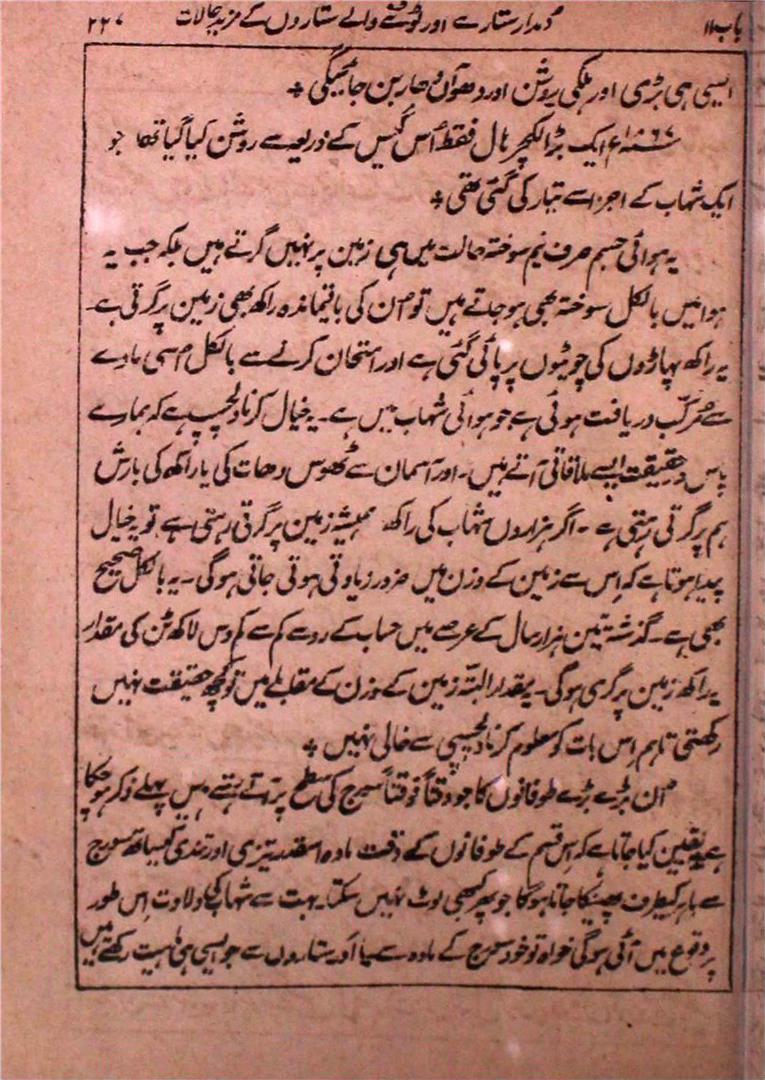 باب ۱۱ دمدار ستارے اور ٹوٹنے والے ستاروں کے مزید حالات ۲۲۷
ایسی ہی بڑی اور ہلکی روشن اور دھوآں دھار بن جائیگی +
۱۸۶۷ء میں ایک بڑا لکچر ہال فقط اُس گیس کے ذریعہ سے روشن کیا گیا تھا جو
ایک شہاب کے اجزا سے تیار کی گئی تھی +
یہ ہوائی جسم صرف نیم سوختہ حالت میں ہی زمین پر نہیں گرتے ہیں بلکہ جب یہ
ہوا میں بالکل سوختہ بھی ہو جاتے ہیں تو اُن کی باقیماندہ راکھ بھی زمین پر گرتی ہے۔
یہ راکھ پہاڑوں کی چوٹیوں پر پائی گئی ہے اور امتحان کرنے سے بالکل اُسی مادے
سے مُرکّب دریافت ہوئی ہے جو ہوائی شہاب میں ہے۔ یہ خیال کرنا دلچسپ ہے کہ ہمارے
پاس درحقیقت ایسے ملاقاتی آتے ہیں۔ اور آسمان سے ٹھوس دھات کی یا راکھ کی بارش
ہم پر گرتی رہتی ہے۔ اگر ہزاروں شہاب کی راکھ ہمیشہ زمین پر گرتی رہتی ہے تو یہ خیال
پیدا ہوتا ہے کہ اِس سے زمین کے وزن میں ضرور زیادتی ہوتی جاتی ہوگی۔ یہ بالکل صحیح
بھی ہے۔ گذشتہ تین ہزار سال کے عرصے میں حساب کے رو سے کم سے کم دس لاکھ ٹن کی مقدار
یہ راکھ زمین پر گری ہوگی۔ یہ مقدار البتہ زمین کے وزن کے مقابلے میں تو کچھ حقیقت نہیں
رکھتی تاہم اِس بات کو معلوم کرنا دلچسپی سے خالی نہیں +
اُن بڑے بڑے طوفانوں کا جو وقتاً فوقتاً سورج کی سطح پر آتے رہتے ہیں پہلے ذکر ہو چکا
ہے یہ یقین کیا جاتا ہے کہ اِس قسم کے طوفانوں کے وقت مادہ اسقدر تیزی اور تندی کیساتھ سورج
سے باہر کیطرف پھینکا جاتا ہوگا جو پھر کبھی لوٹ نہیں سکتا۔ بہت سے شہاب کی ولادت اِس طور
پر وقوع میں آئی ہوگی خواہ تو خود سورج کے مادہ سے یا اَور ستاروں سے جو ایسی ہی ماہیت رکھتے ہیں